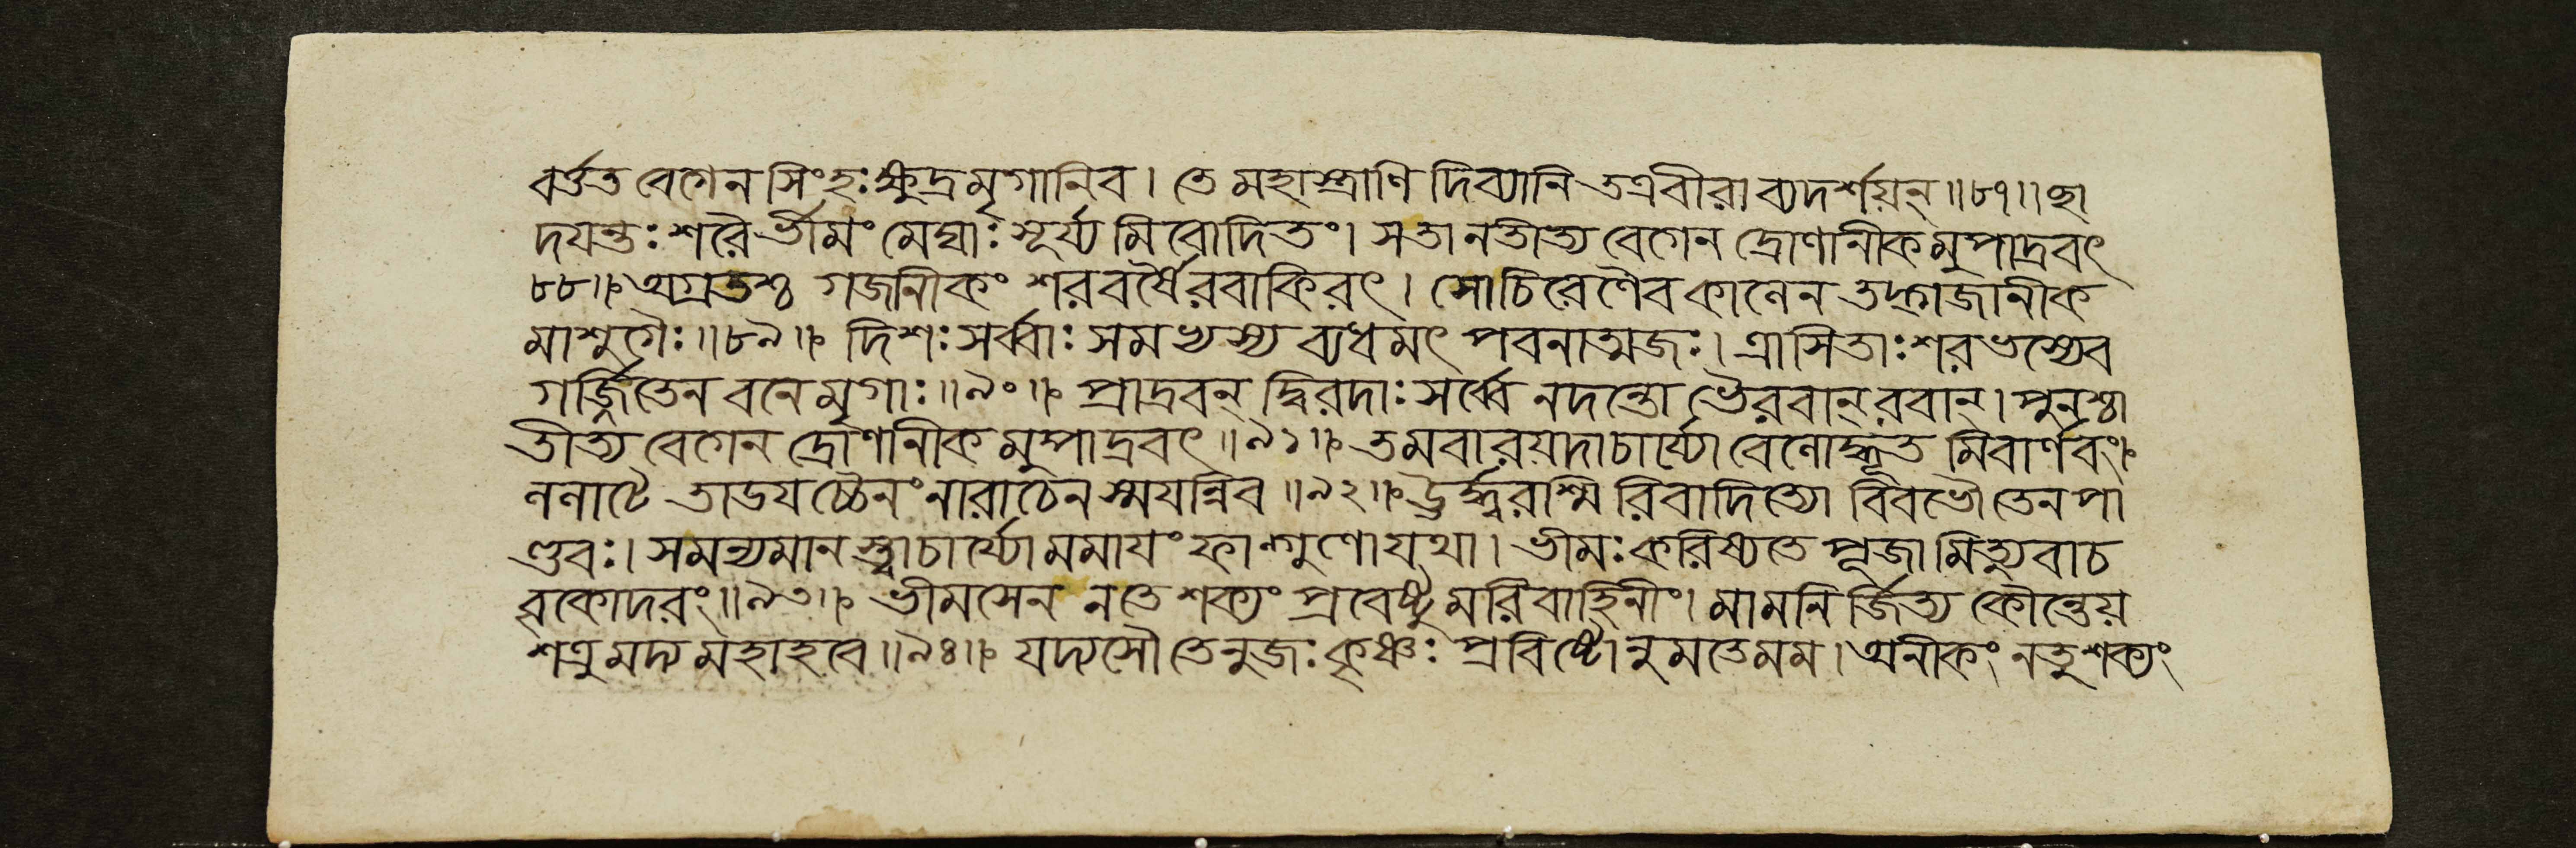 বর্ত্তত বেগেন সিংহঃ ক্ষুদ্রমৃগানিব। তে মহাস্ত্রাণি দিব্যানি তত্রবীরা ব্যদর্শয়ন্॥৮৭॥ছা
দযন্তঃ শরৈর্ভীমং মেঘাঃ সূর্য্যমিবোদিতং। সতানতীত্য বেগেন দ্রোণানীকমুপাদ্রবৎ
৮৮॥ অগ্রতশ্চ গজানীকং শরবর্ষৈরবাকিরৎ। সোচিরেণৈব কালেন তদ্গজানীক
মাশুগৈঃ॥৮৯॥ দিশঃ সর্ব্বাঃ সমভ্যস্য ব্যধমৎ পবনাত্মজঃ। ত্রাসিতাঃ শরভস্যেব
গর্জ্জিতেন বনে মৃগাঃ॥৯০॥ প্রাদ্রবন্ দ্বিরদাঃ সর্ব্বে নদন্তো ভৈরবান্ রবান্। পুনশ্চা
তীত্য বেগেন দ্রোণানীকমুপাদ্রবৎ॥৯১॥ তমবারয়দাচার্য্যো বেলোদ্ধৃতমিবার্ণবং॥
ললাটে তাডযচ্চৈনং নারাচেন স্ময়ন্নিব॥৯২॥ ঊর্দ্ধ্বরশ্মিরিবাদিত্যো বিবভৌ তেন পা
ণ্ডবঃ। সমন্যমানস্ত্বাচার্য্যো মমাযং ফাল্গুণো যথা। ভীমঃ করিষ্যতে পূজামিত্যুবাচ
বৃকোদরং॥৯৩॥ ভীমসেন নতে শক্যং প্রবেষ্টুমরিবাহিনীং। মামনির্জিত্য কৌন্তেয়
শত্রুমদ্য মহাহবে॥৯৪॥ যদ্যসৌ তেনুজঃ কৃষ্ণঃ প্রবিষ্টোনুমতে মম। অনীকং নতু শক্যং